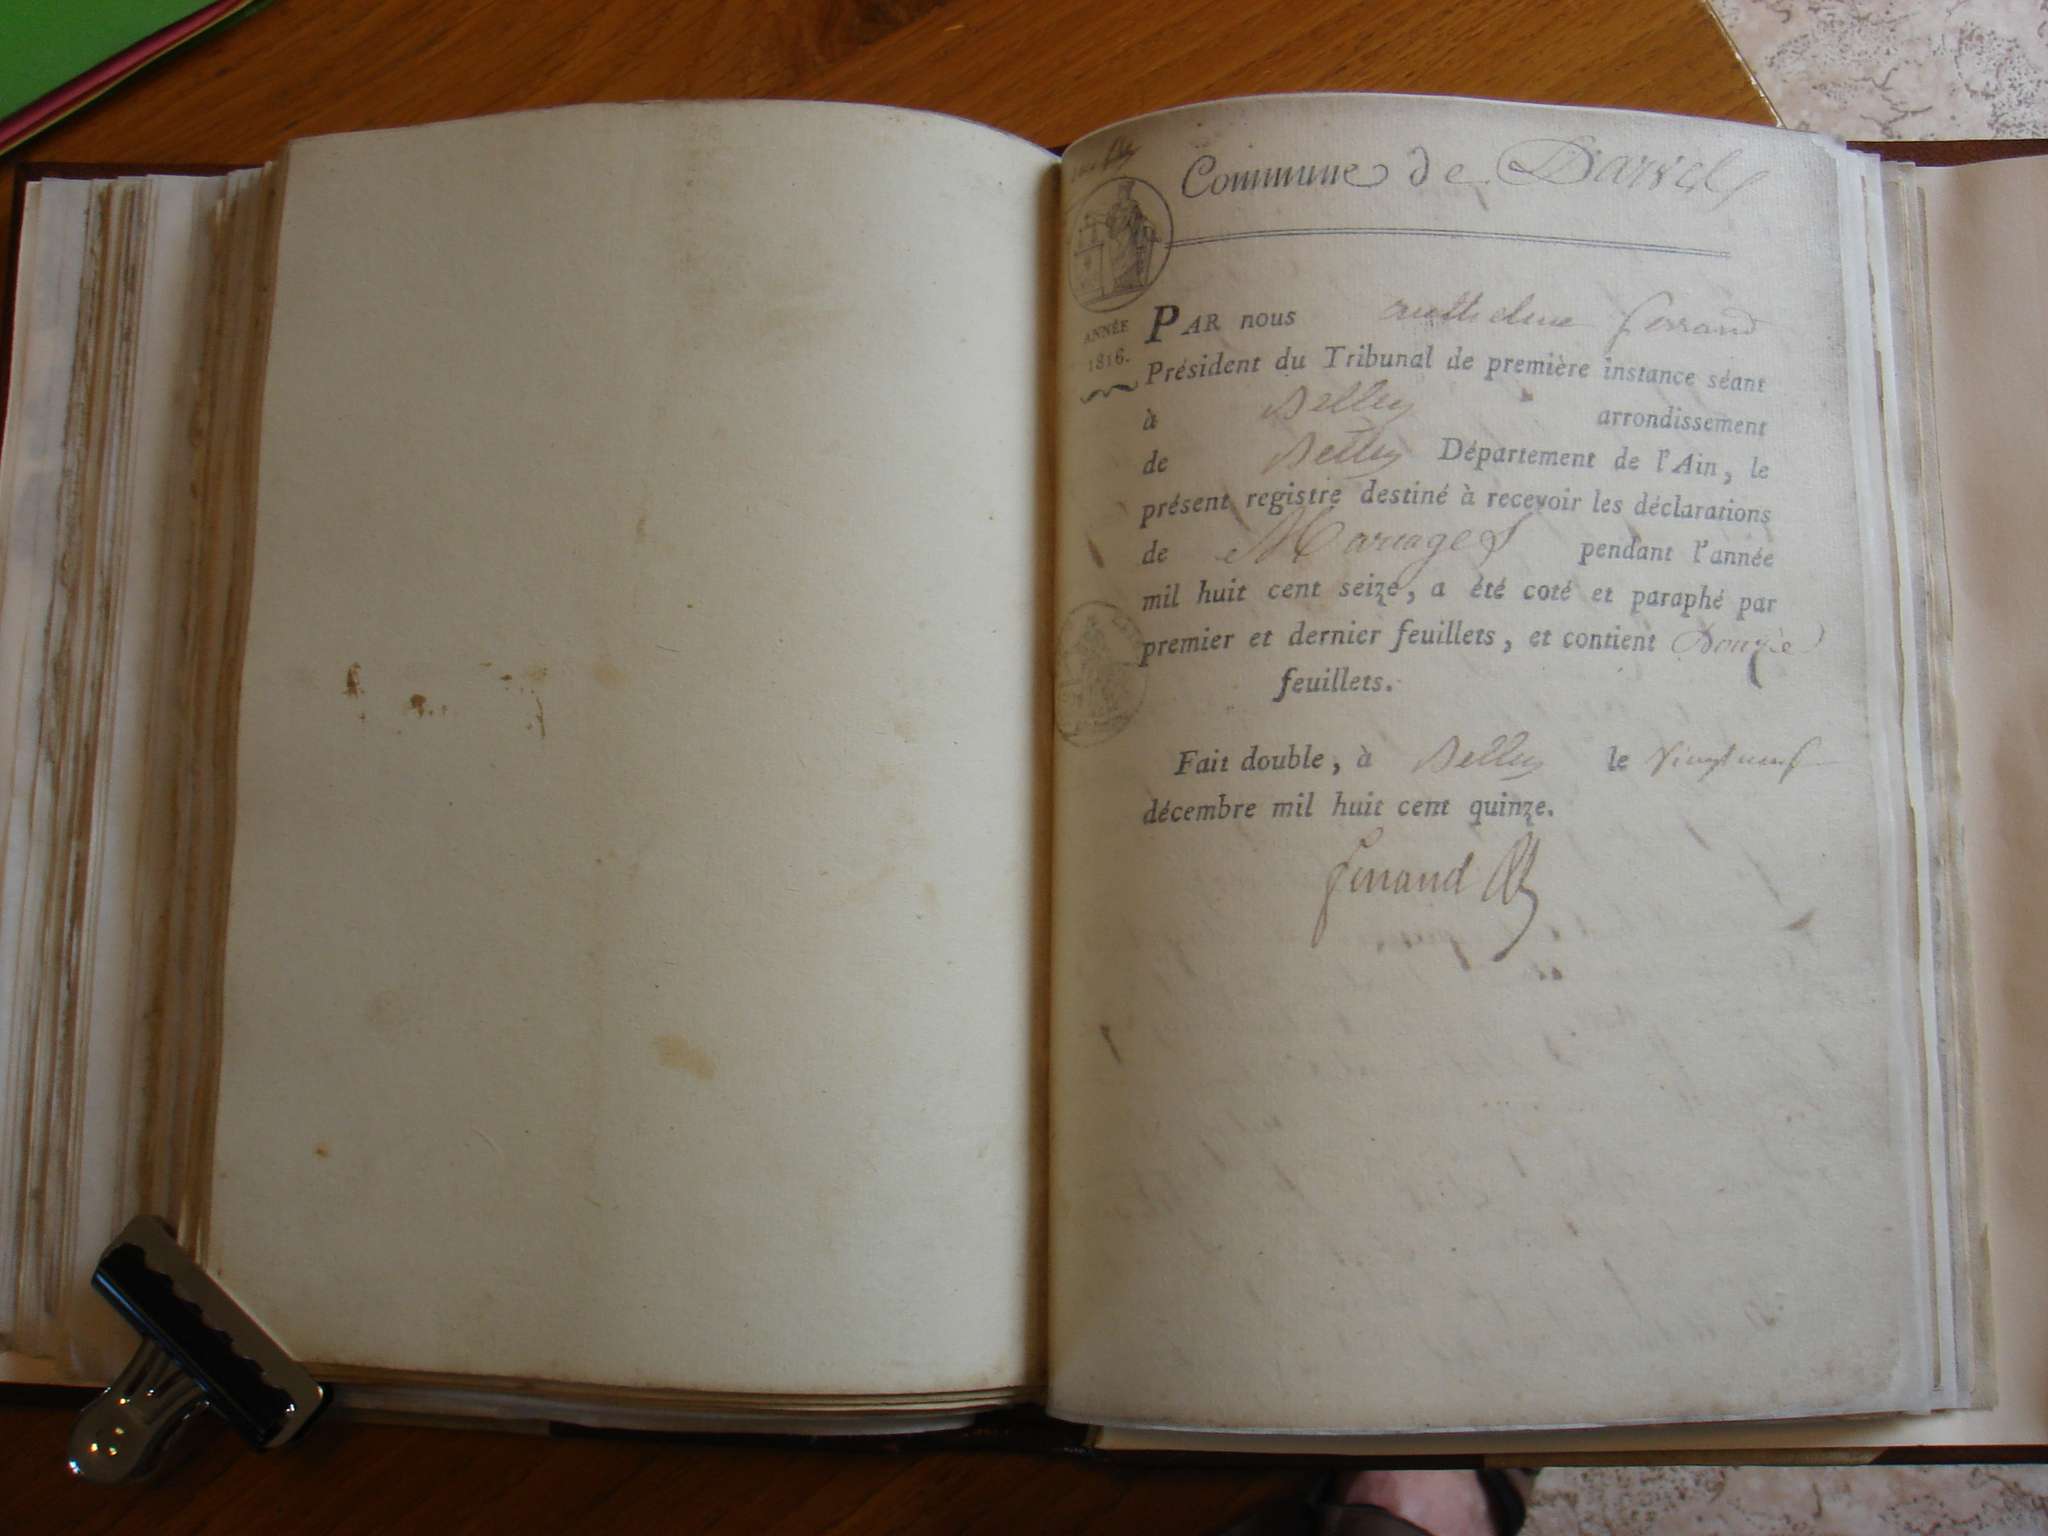 Commune de
ANNÉE
1816.
PAR nous anthelme ferrand
Président du Tribunal de première instance séant
à Belley arrondissement
de Belley Département de l'Ain, le
présent registre destiné à recevoir les déclarations
de Mariages pendant l'année
mil huit cent seize, a été coté et paraphé par
premier et dernier feuillets, et contient Douze
feuillets.
Fait double, à Belley le vingt neuf
décembre mil huit cent quinze.
ferrand